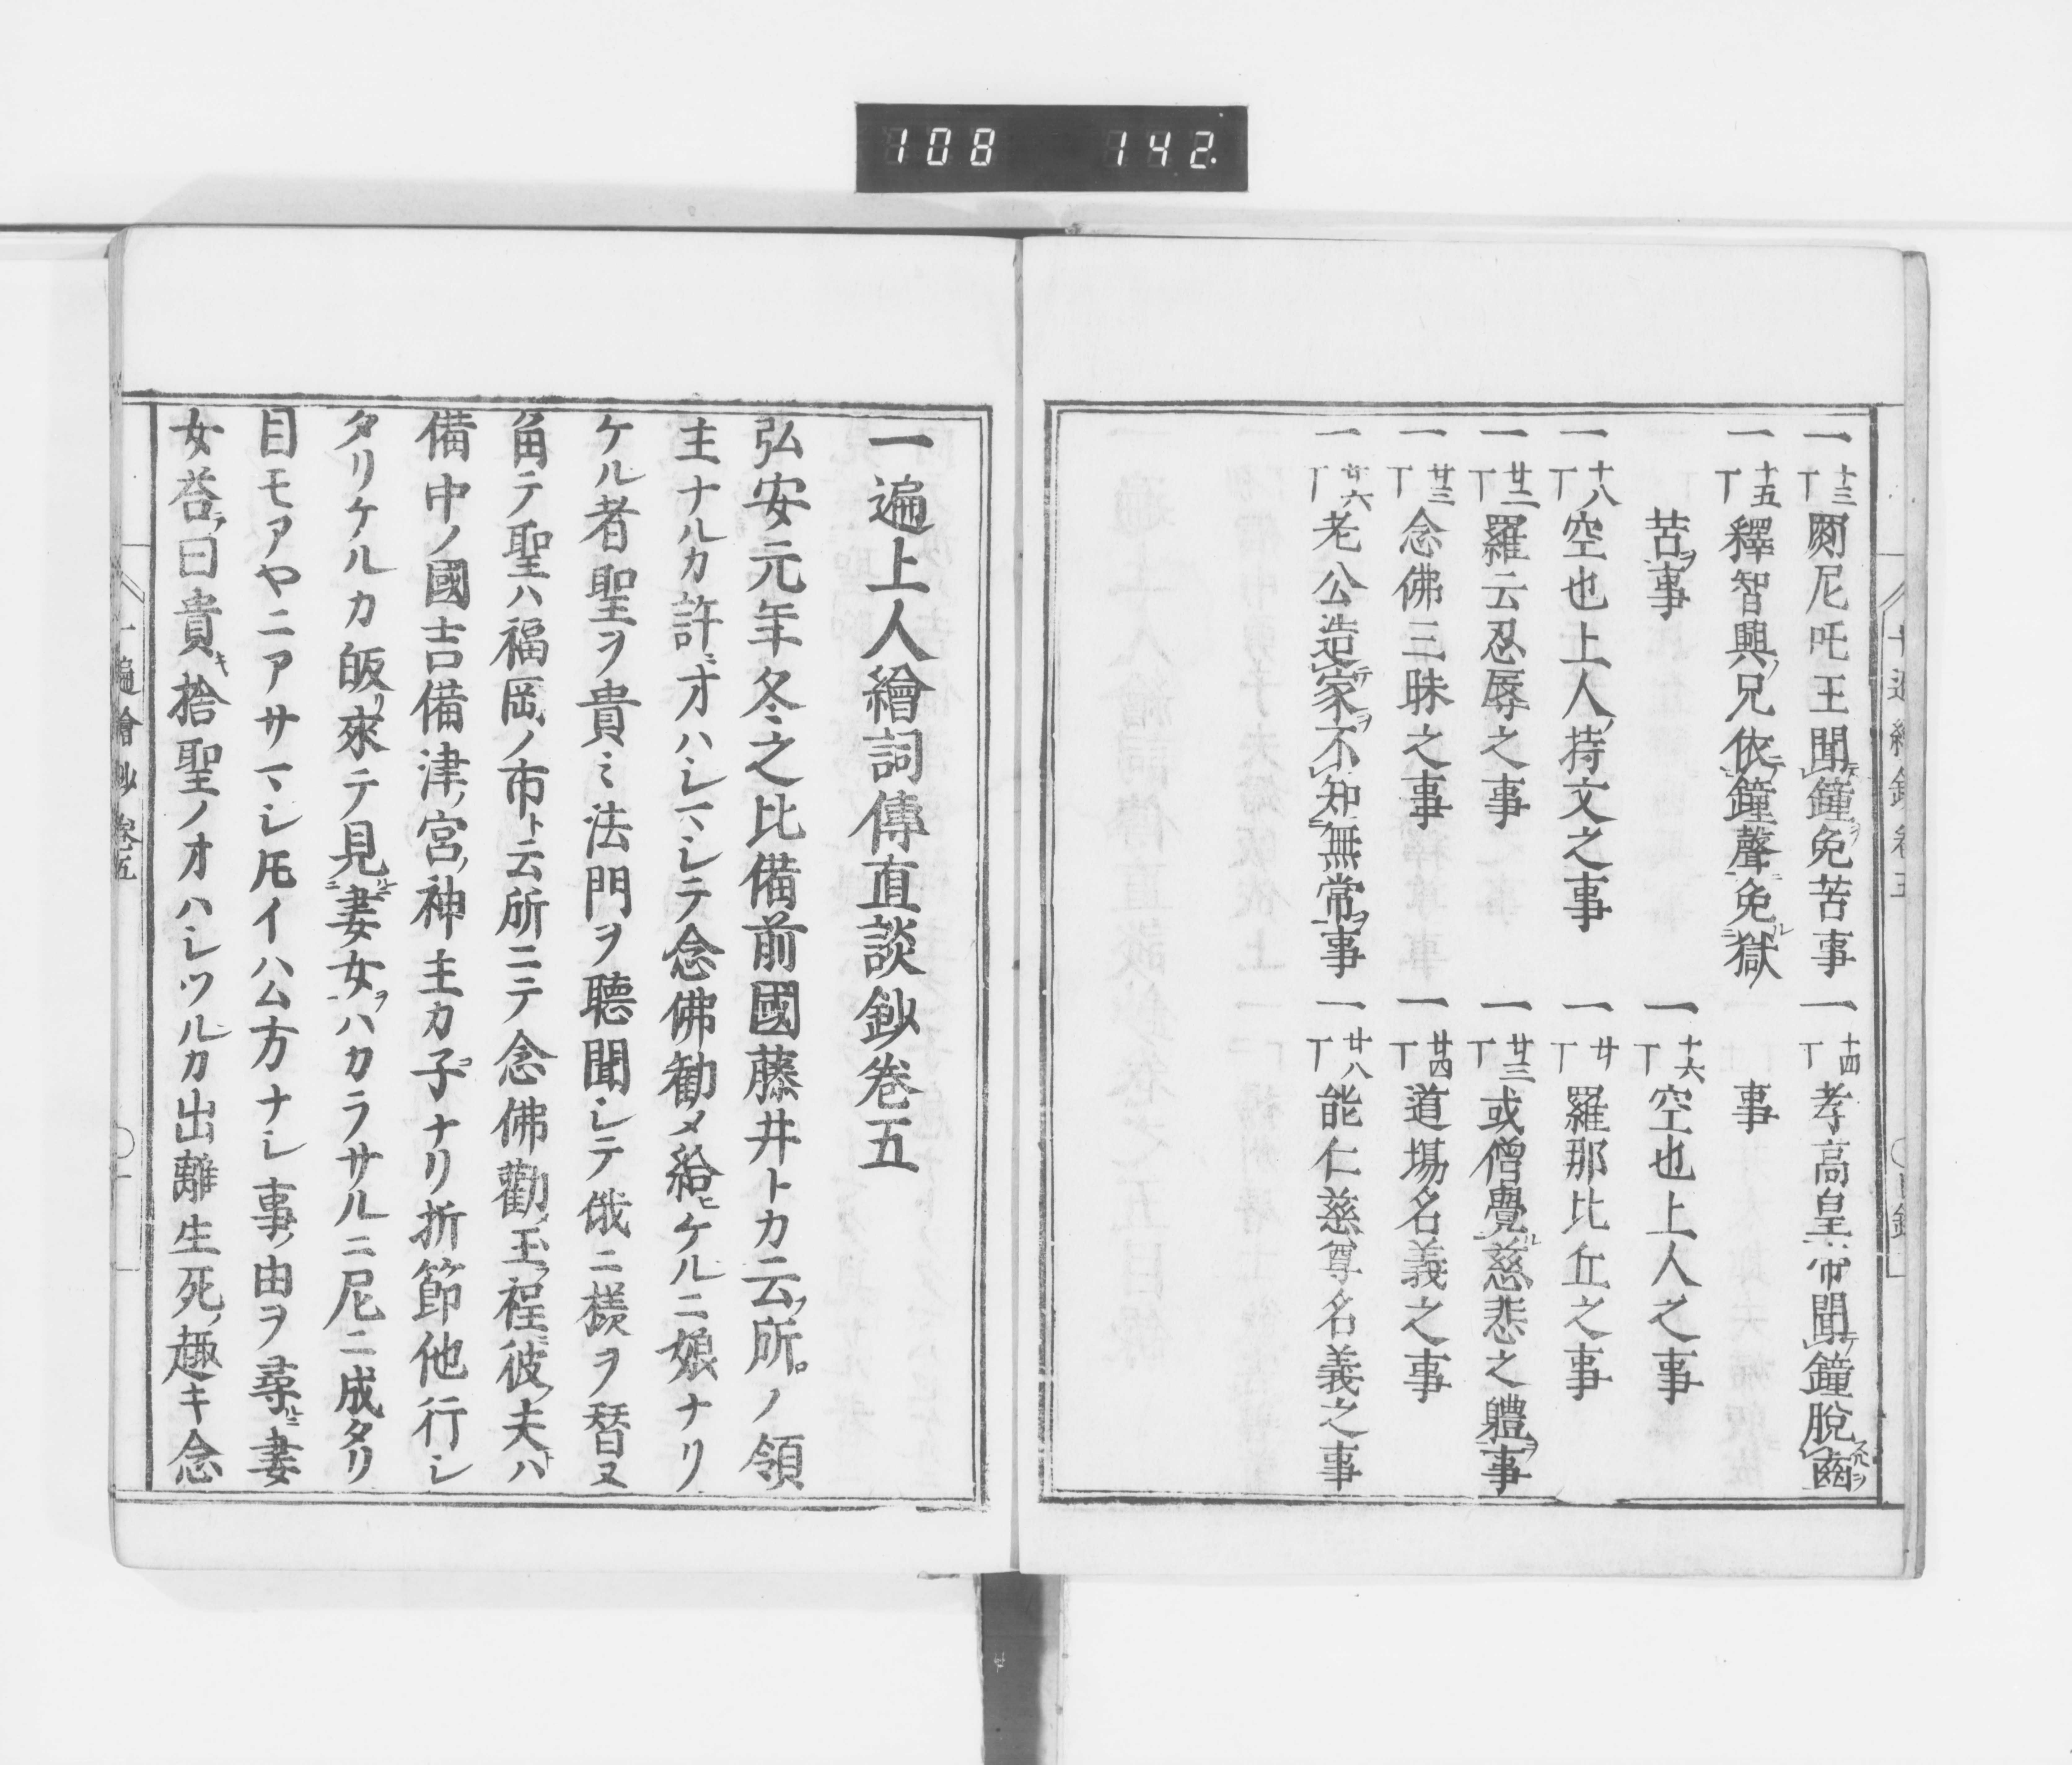 108 142
一 十三丁 罽尼吒王聞鐘免苦事
一 十四丁 孝高皇帝聞鐘脫
一 十五丁 釋智興兄依鐘聲免獄
苦事
事
一 十六丁 空也上人之事
一 十八丁 空也上人持文之事
一 廿丁 羅那比丘之事
一 廿二丁 羅云忍辱之事
一 廿三丁 或僧覺慈悲之軆事
一 廿三丁 念佛三昧之事
一 廿四丁 道場名義之事
一 廿六丁 老公造家不知無常事
一 廿八丁 能仁慈尊名義之事
一遍上人繪詞傳直談鈔卷五
弘安元年冬之比備前國藤井トカ云所ノ領
主ナルカ許ニオハシマシテ念佛勸メ給ヒケルニ娘ナリ
ケル者聖ヲ貴ミ法門ヲ聽聞シテ俄ニ樣ヲ替ヌ
角テ聖ハ福岡ノ市ト云所ニテ念佛勸メ玉フ程ニ彼夫ハ
備中ノ國吉備津宮ノ神主カ子ナリ折節他行シ
タリケルカ皈リ來テ見ルニ妻女ヲハカラサルニ尼ニ成タリ
目モアヤニアサマシ𪜈イハム方ナシ事ノ由ヲ尋ルニ妻
女荅テ曰貴キ捨聖ノオハシツルカ出離生死ノ趣キ念
一遍繪鈔卷五